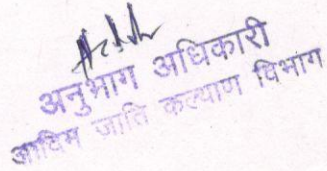 अनुभाग अधिकारी
आदिम जाति कल्याण विभाग